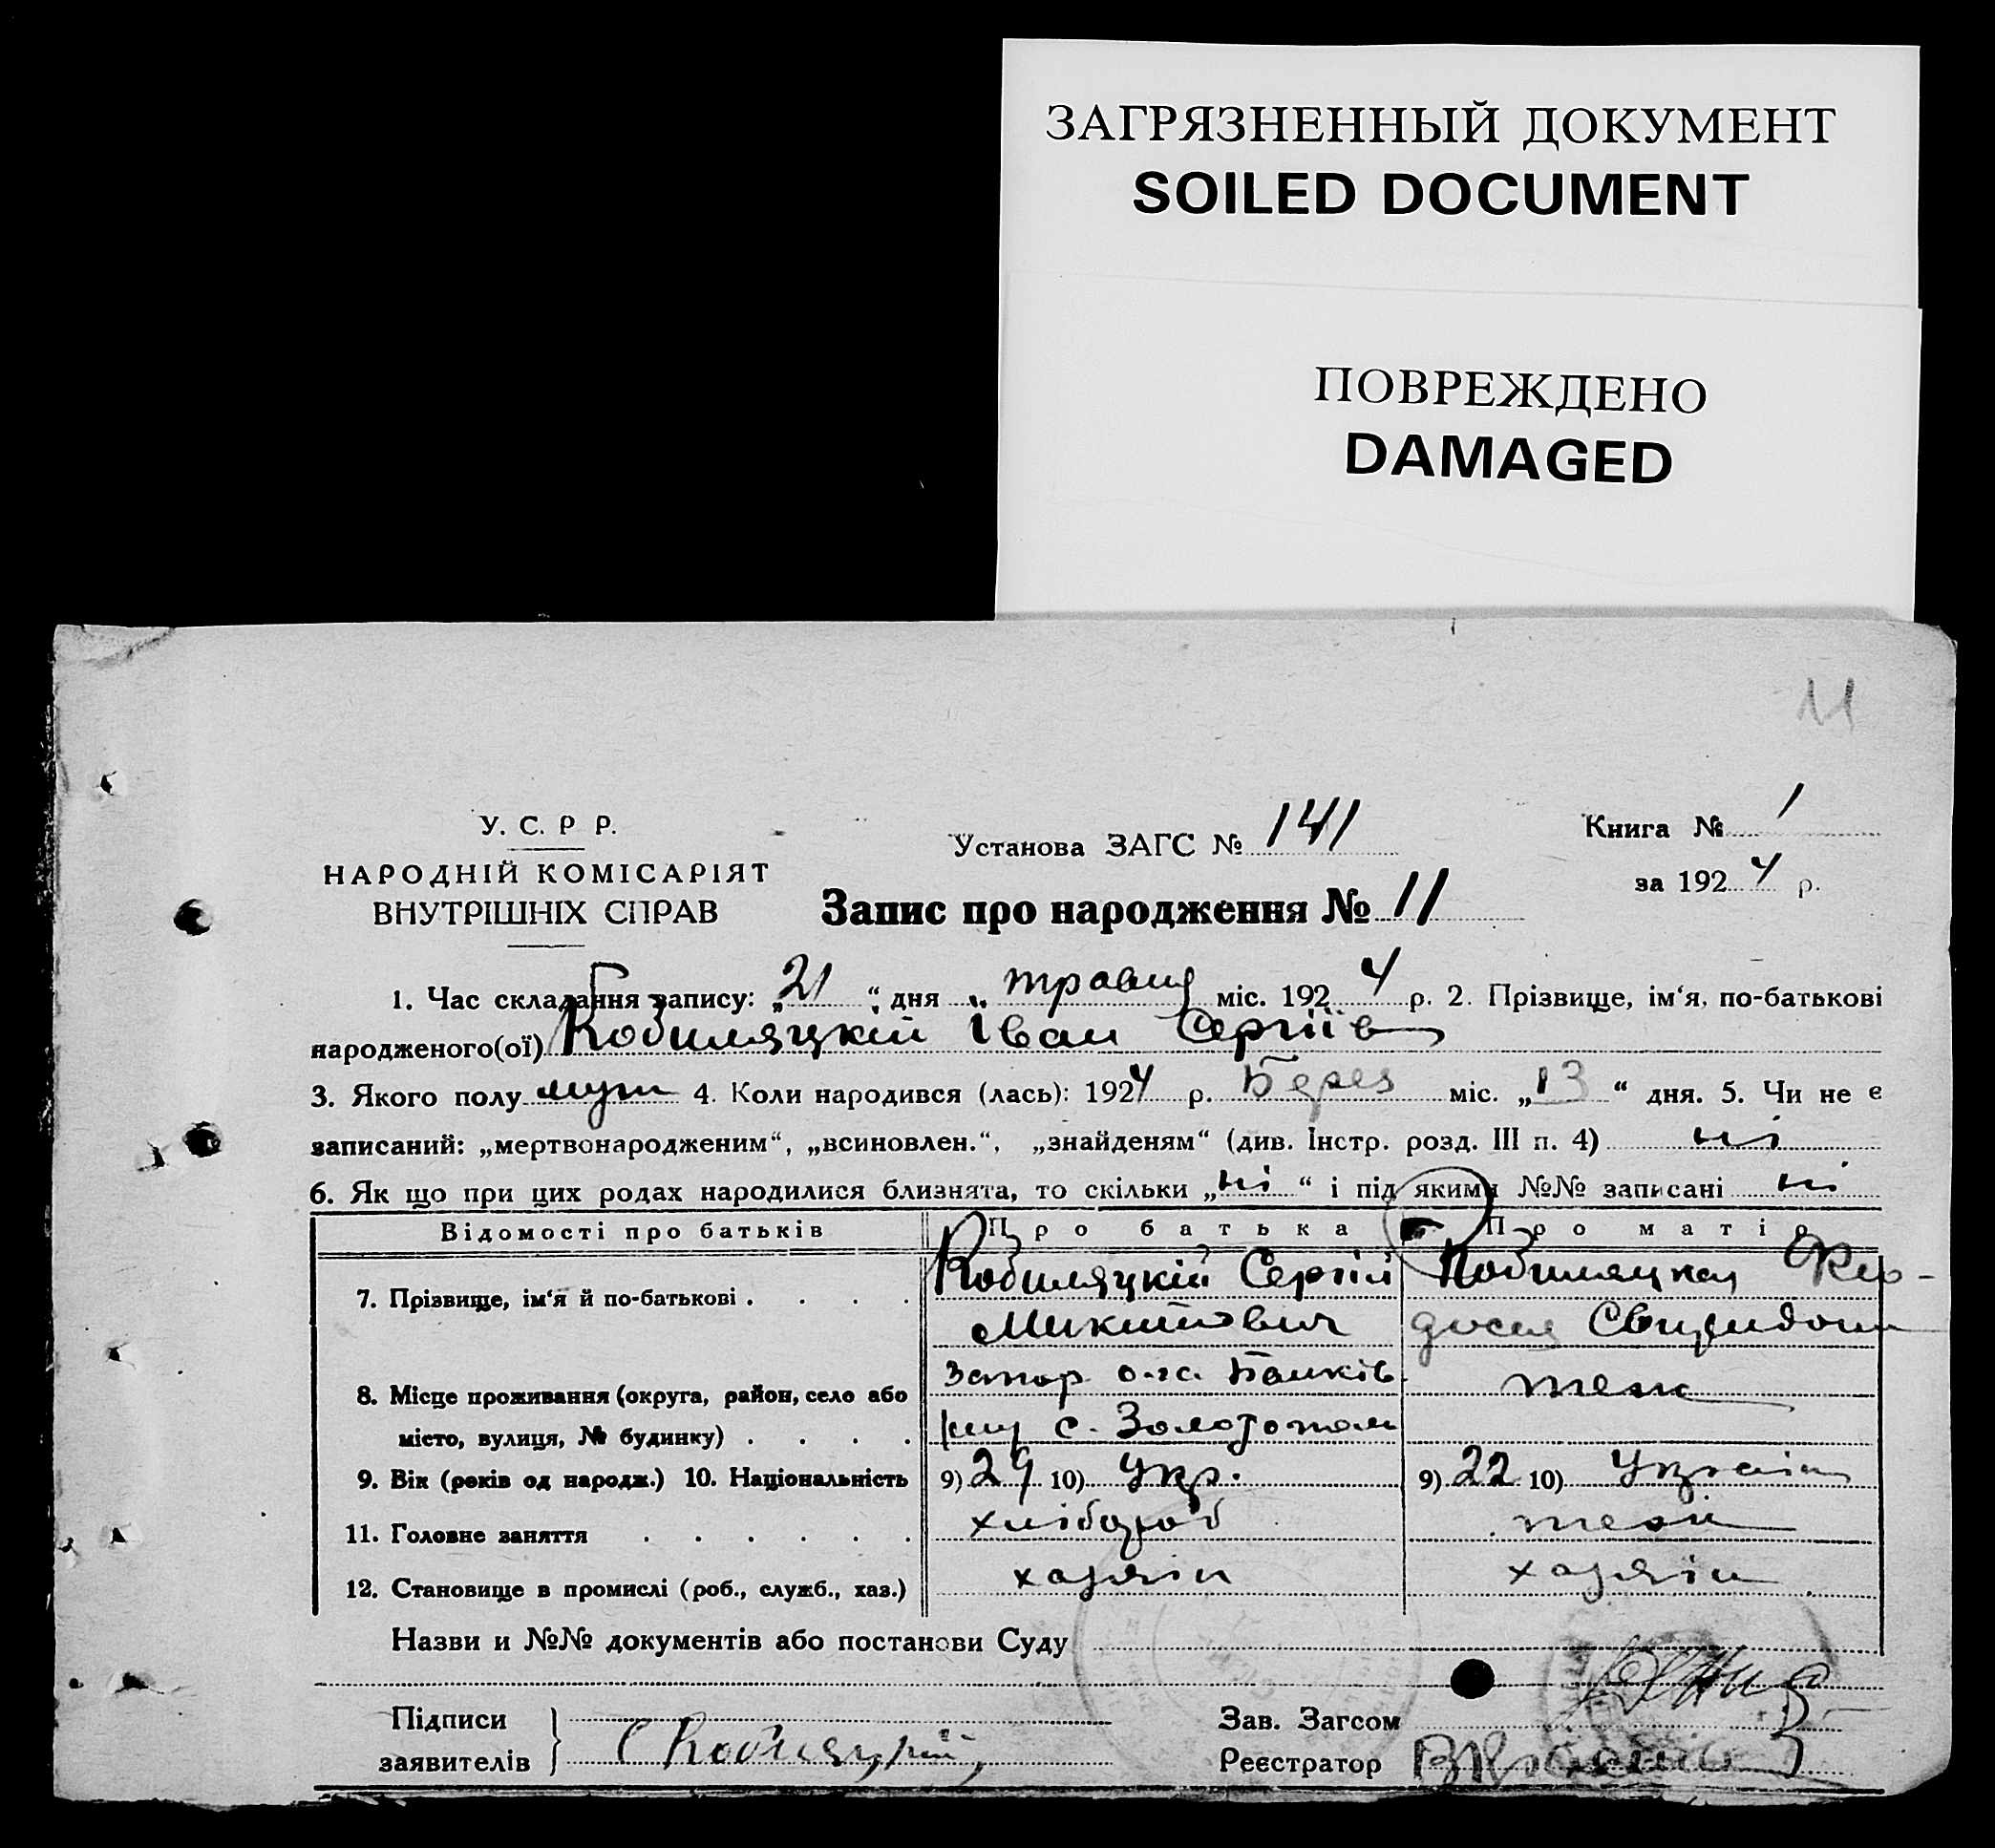 ЗАГРЯЗНЕННЫЙ ДОКУМЕНТ
SOILED DOCUMENT
ПОВРЕЖДЕНО
DAMAGED
11
У. С. Р Р.
НАРОДНІЙ КОМІСАРІЯТ
ВНУТРІШНІХ СПРАВ
Установа ЗАГС № 141
Книга № 1
за 1924 р.
Запис про народження № 11
1. Час складання запису: „21“ дня „ травня міс. 1924 р. 2. Прізвище, ім‘я, по-батькові
народженого(ої) Кобиляцкій Іван Сергіїв
3. Якого полу муж 4. Коли народився (лась): 1924 р. Берез міс. „13“ дня. 5. Чи не є
записаний: „мертвонародженим“, „всиновлен.“, „знайденям“ (див. Інстр. розд. III п. 4) ні
6. Як що при цих родах народилися близнята, то скільки „ні“ і під якими №№ записані ні
Відомості про батьків Про батька Про матір
7. Прізвище, ім‘я й по-батькові . . . . Кобиляцкій Сергій Кобиляцкая
Микитович
8. Місце проживання (округа, район, село або Запор теж
місто, вулиця, № будинку) . . . . с.
9. Вік (років од народж.) 10. Національність 9) 29 10) Укр. 9) 22 10)
11. Головне заняття . . . . . . хлібороб теж
12. Становище в промислі (роб., служб., хаз.) хазяін хазяін
Назви и №№ документів або постанови Суду
Підписи
заявителів С Кобиляцкій
Зав. Загсом
Реєстратор